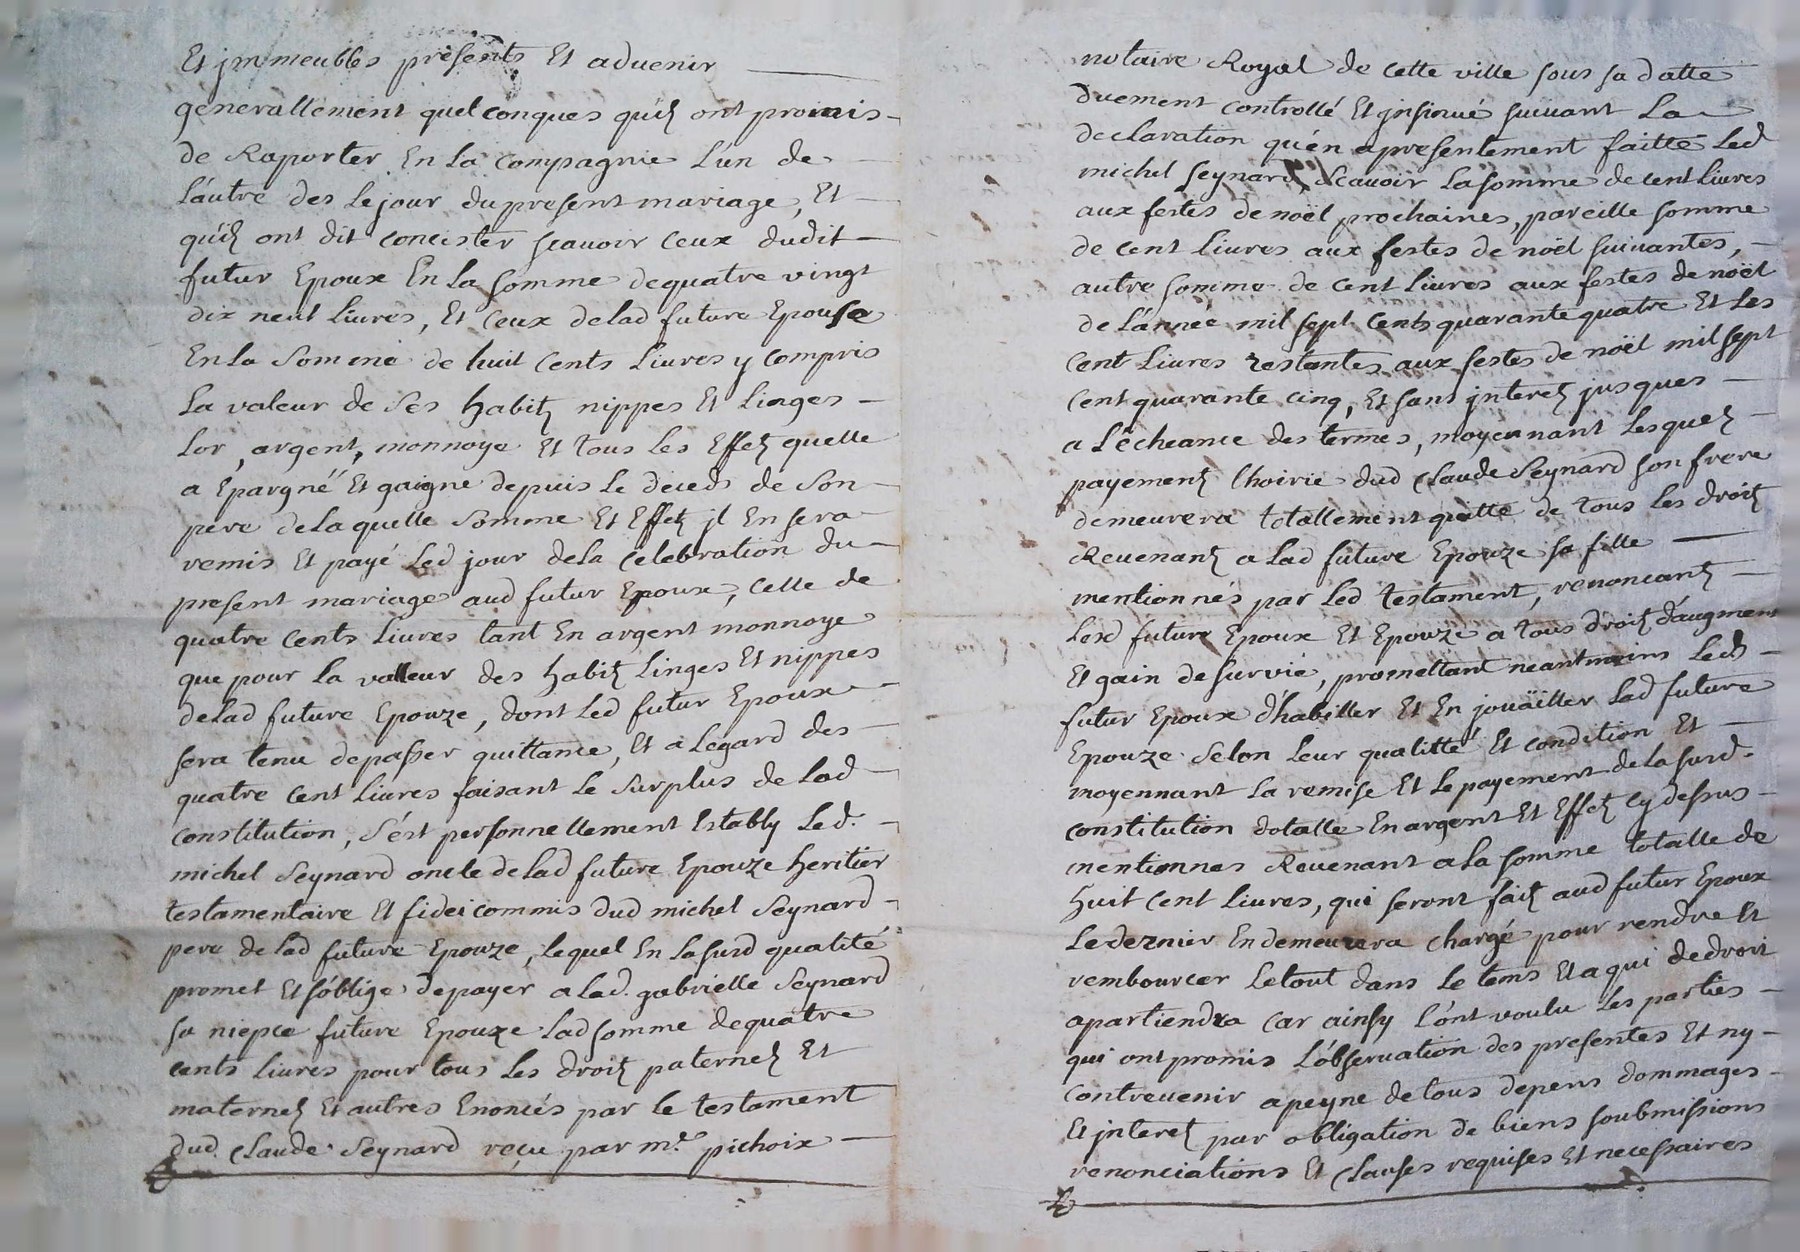 Et jmmeubles presents Et advenir
generallement quelconques quilz ont promis
de Raporter En la compagnie L'un de
L'autre des Le jour du present mariage, Et
quilz ont dit concister scavoir ceux dudit
futur Epoux En La somme de quatre vingt
dix neuf livres, Et ceux de lad future Epouse
En La Somme de huit cents Livres y compris
La valeur de Ses habitz nippes Et Linges
Lor, argent, monnoye Et tous les Effetz quelle
a Epargné Et gaigne depuis Le deceds de Son
pere de laquelle Somme Et Effetz jl En sera
remis Et payé Led jour de la celebration du
present mariage aud futur Epoux, celle de
quatre cents Livres tant En argent monnoye
que pour La valleur des habitz Linges Et nippes
de lad future Epouze, dont Led futur Epoux
sera tenu de passer quittance, Et a Legard des
quatre cent Livres faisant Le Surplus de Lad
constitution, S'ést personnellement Establÿ Led.
michel Seynard oncle de Lad future Epouze heritier
testamentaire Et fideicommis dud michel Seynard
pere de Lad future Epouze, lequel En La surd qualité
promet Et s'óblige de payer a Lad. gabrielle Seynard
sa niepce future Epouze Lad somme de quatre
cents Livres pour tous Les droitz paternelz Et
maternelz Et autres Enoncés par le testament
dud. Claude Seynard reçu par mᵉ. pichoix
notaire Royal de cette ville sous sa datte
duement controllé Et jnsinué suivant La
declaration qu'én a presentement faitte Led
michel Seynard, Scavoir La somme de cent Livres
aux festes de noël prochaines, pareille somme
de cent Livres aux festes de noël suivantes,
autre somme de cent Livres aux festes de noël
de L'année mil sept cents quarante quatre Et Les
cent Livres restantes aux festes de noël mil sept
cent quarante cinq, Et sans jnteretz jusques
a L'écheance des termes, moyennant Lesquelz
payementz L'hoirie dud Claude Seynard son frere
demeurera totallement quitte de tous Les droitz
Revenantz a Lad future Epouze sa fille
mentionnés par Led testament, renonceantz
Lesd future Epoux Et Epouze a tous droitz d'augment
Et gain de survie, promettant neantmoins Led
futur Epoux d'habiller Et En joüäiller Lad future
Epouze Selon Leur qualitté Et condition Et
moyennant La remise Et Le payement de La surd.
constitution dotalle En argent Et Effetz cy dessus
mentionnes Revenant a La somme totalle de
huit cent Livres, qui seront faitz aud futur Epoux
Le dernier En demeurera chargé pour rendre Et
rembourcer Le tout dans Le tems Et a qui de droit
apartiendra car ainsy L'ont voulu Les parties
qui ont promis L'observation des presentes Et ny
contrevenir a peyne de tous depens dommages
Et jnteretz par obligation de biens soubmissions
renonciations Et Clauses requises Et necessaires